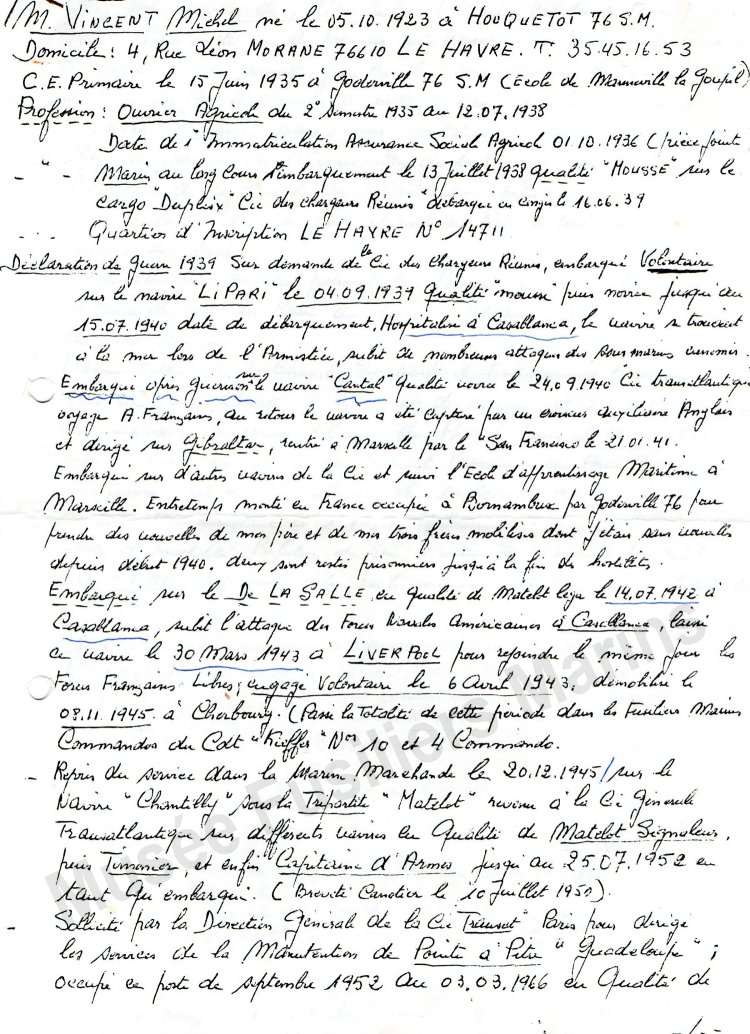 M. VINCENT Michel né le 05.10.1923 à HOUQUETOT 76 S.M.
Domicile : 4, Rue Léon MORANE 76610 LE HAVRE. T. 35.45.16.53
C.E. Primaire le 15 Juin 1935 à Goderville 76 S.M (Ecole de Manneville la Goupil)
Profession : Ouvrier Agricole du 2° semestre 1935 au 12.07.1938
Date de l'Immatriculation Assurance Sociale Agricole 01.10.1936 (pièce jointe
- " - Marin au long Cours embarquement le 13 Juillet 1938 qualité "MOUSSE" sur le
cargo "Dupleix" Cie des chargeurs Réunis débarqué en congés le 16.06.39
... Quartier d'Inscription LE HAVRE N° 14711
Déclaration de Guerre 1939 Sur demande de la Cie des Chargeurs Réunis, embarqué Volontaire
sur le navire "LIPARI" le 04.09.1939 Qualité "mousse" puis novice jusqu'au
15.07.1940 date de débarquement, Hospitalisé à Casablanca, le navire se trouvant
à la mer lors de l'Armistice, subit de nombreuses attaques des sous marins ennemis.
Embarqué après guérison sur le navire "Cantal" Qualité novice le 24.09.1940 Cie transatlantique
voyage A. Français, au retour le navire a été capturé par un croiseur auxiliaire Anglais
et dirigé sur Gibraltar, rentré à Marseille par le "San Francisco le 21.01.41.
Embarqué sur d'autres navires de la Cie et suivi l'Ecole d'apprentissage Maritime à
Marseille. Entretemps monté en France occupée à Bornambusc par Goderville 76 pour
prendre des nouvelles de mon père et de mes trois frères mobilisés dont j'étais sans nouvelles
depuis début 1940. deux sont restés prisonniers jusqu'à la fin des hostilités.
Embarqué sur le De LA SALLE en qualité de Matelot léger le 14.07.1942 à
Casablanca, subit l'attaque des Forces Navales Américaines à Casablanca, laissé
ce navire le 30 Mars 1943 à LIVERPOOL pour rejoindre le même jour les
Forces Françaises Libres, engagé Volontaire le 6 Avril 1943, démobilisé le
08.11.1945 à Cherbourg. (Passé la Totalité de cette période dans les Fusiliers Marins
Commandos du Cdt "Kieffer" Nos 10 et 4 Commando.
- Repris du service dans la Marine Marchande le 20.12.1945 / sur le
Navire "Chantilly" sous la Tripartite "Matelot" revenu à la Cie Générale
Transatlantique sur différents navires en Qualité de Matelot Signaleur,
puis Timonier, et enfin "Capitaine d'Armes jusqu'au 25.07.1952 en
tant qu'embarqué. (Breveté Canotier le 10 Juillet 1950).
- Sollicité par la Direction Générale de la Cie Transat" Paris pour diriger
les services de la Manutention de Pointe à Pitre "Guadeloupe" ;
occupé ce poste de septembre 1952 au 03.03.1966 en Qualité de
Musée Fusiliers Marins